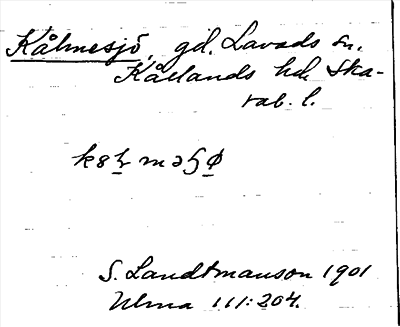 Kålmesjö, gd. Lavads sn.
Kållands hd. Ska-
rab. l.
k8ꝉ məɧφ
S. Landtmanson 1901
Ulma 111:204.